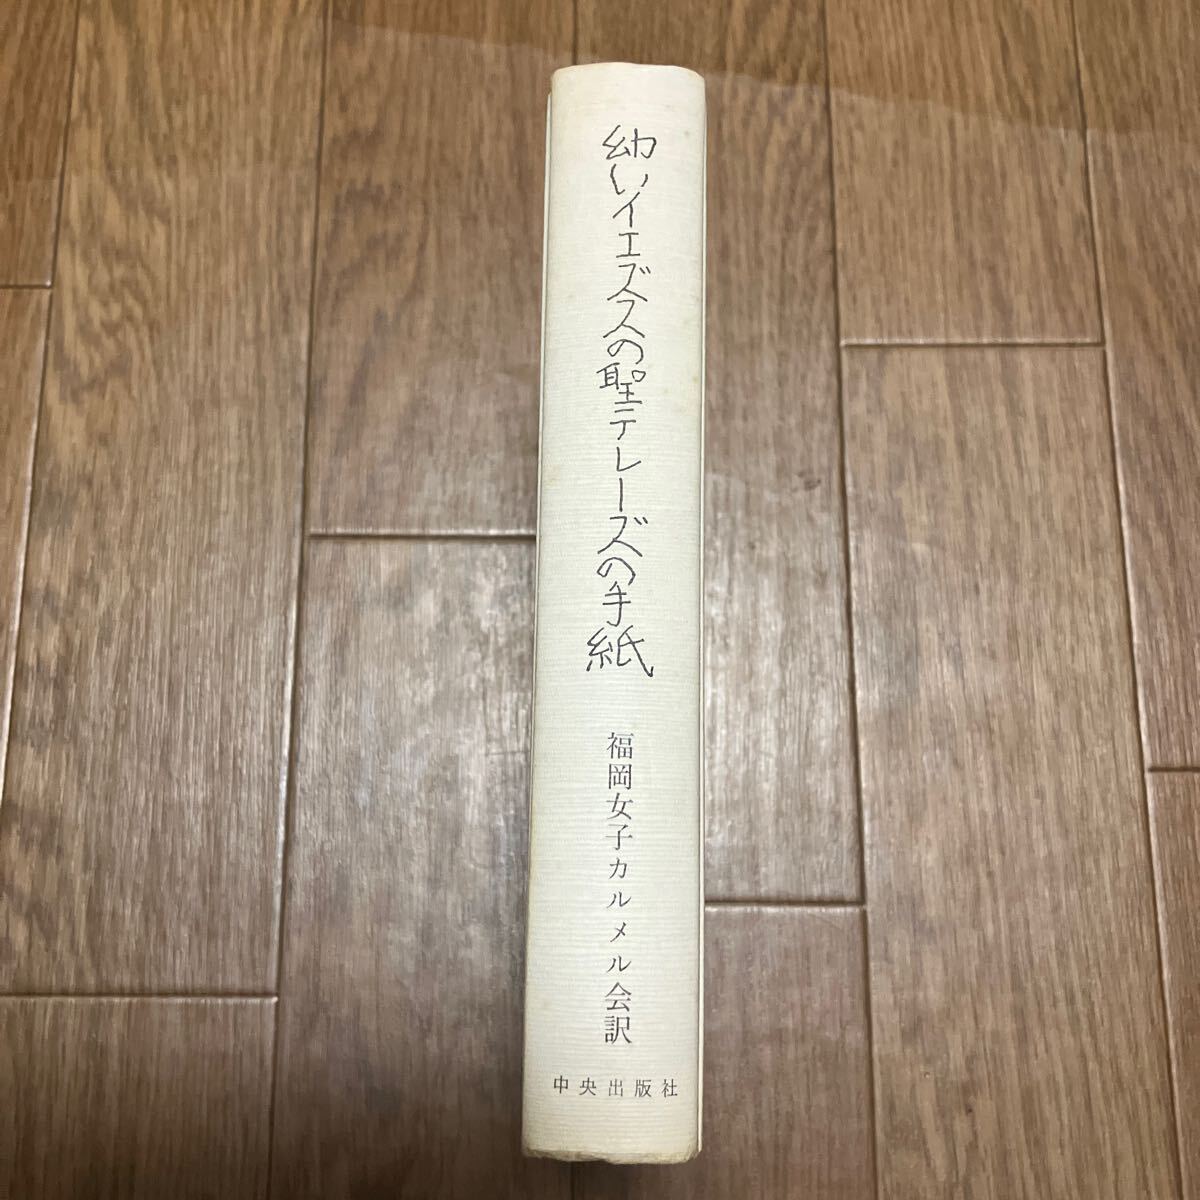 幼いイエズスの聖テレーズの手紙
福岡女子カルメル会訳
中央出版社